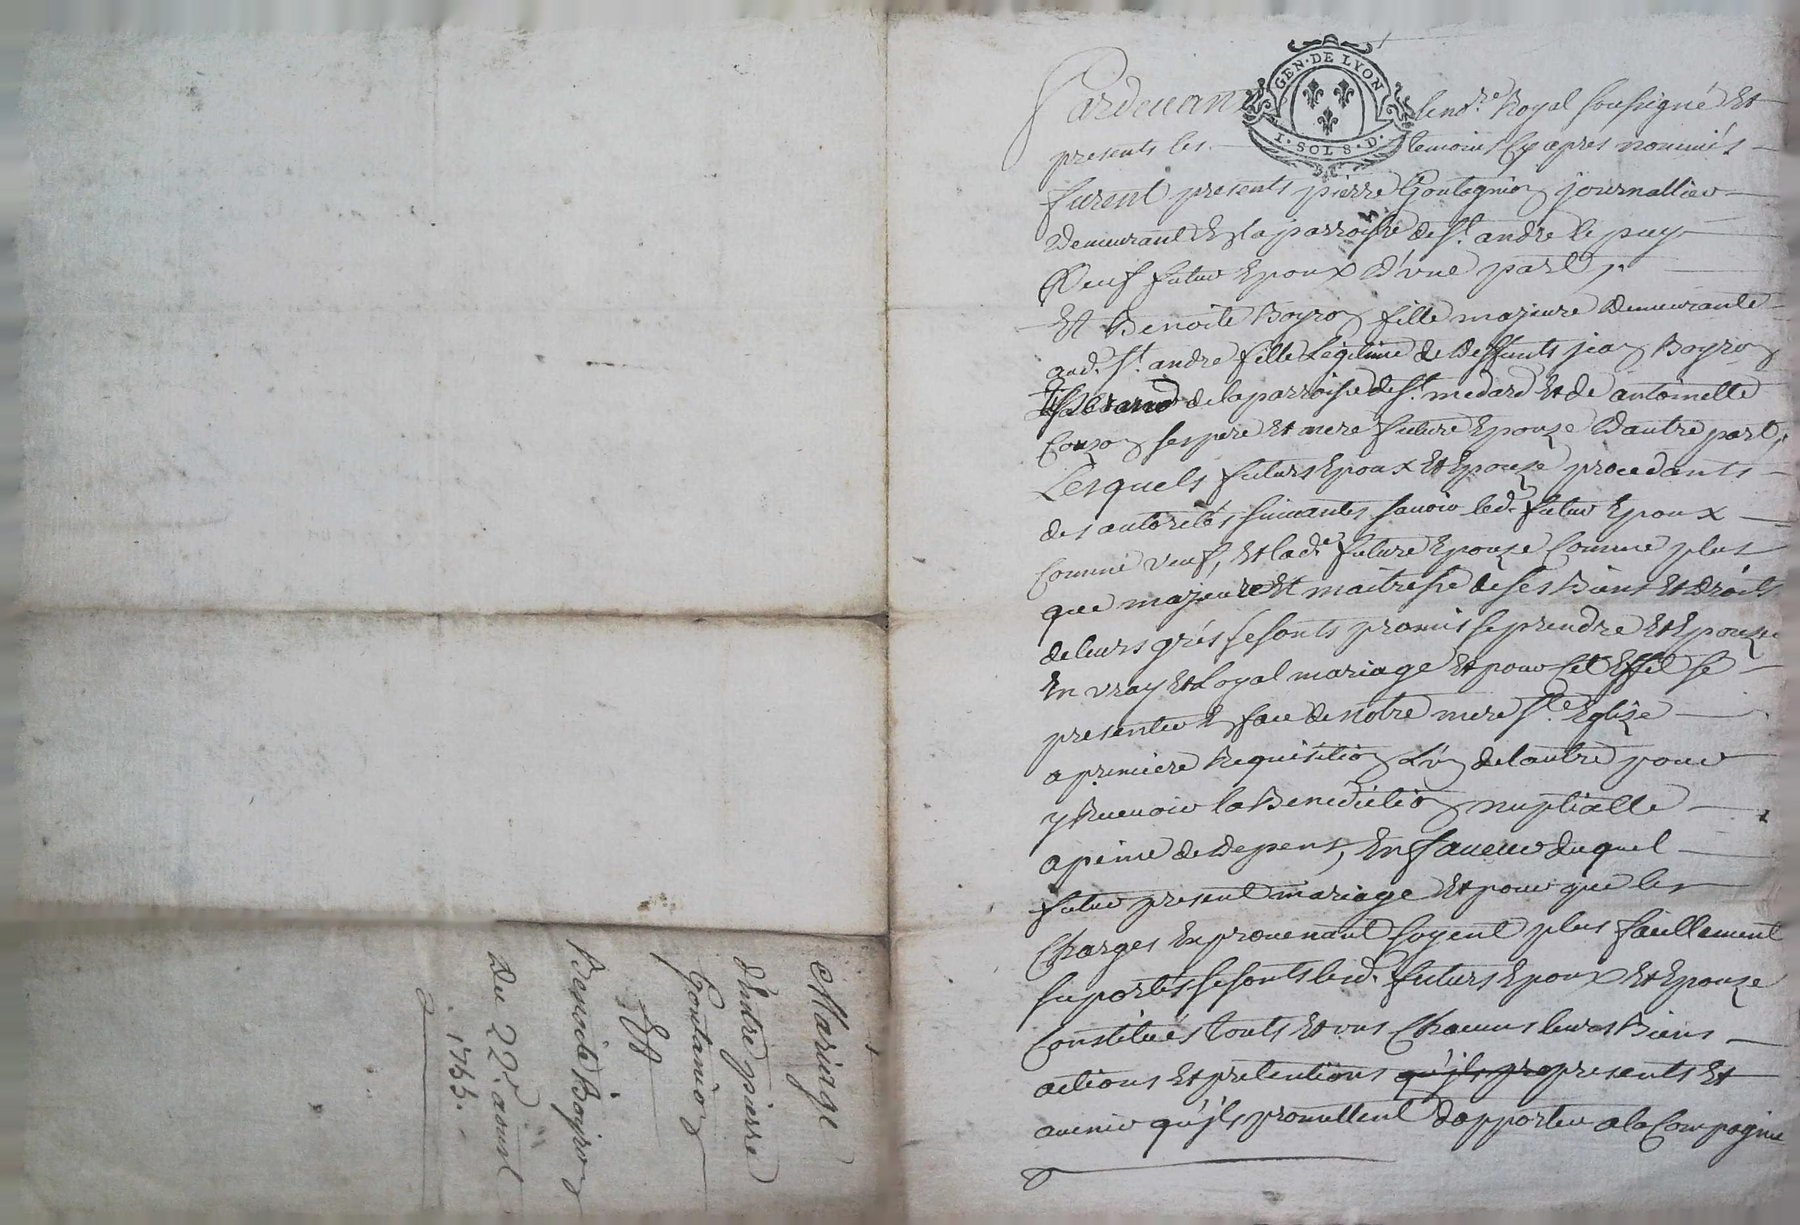 Mariage
d'Entre pierre
Goutanion
Et
Benoite Boyron
Du 22e. aoust
1755.
GEN·DE LYON
1·SOL 8·D·
Pardevant le nore. Royal soussigné Et
presents les temoins Cy apres nommés
furent presents pierre Goutagnion journallier
Demeurant En la parroisse de St. andré le puy
Veuf futur Epoux D'une part,
Et Benoite Boyron fille majeure Demeurante
aud. St. andré fille Legitime de Deffunts jean Boyron
de la parroisse de St. medard Et de antoinette
ses pere Et mere future Epouze D'autre part,
Lesquels futurs Epoux Et Epouze procedants
des autorités suivantes savoir led. futur Epoux
Comme veuf, Et lade. future Epouze Comme plus
que majeure Et maitresse de ses Biens Et Droits
de leurs grés se sonts promis se prendre Et Epouzer
En vray Et Loyal mariage Et pour Cet Effet se
presenter En face de notre mere Ste. Eglize
a premiere Requisition L'un de lautre pour
y Recevoir la Benediction nuptialle
a peine de Depens, En faveur duquel
futur present mariage Et pour que les
Charges En provenant soyent plus facillement
suportés se sonts lesd. futurs Epoux Et Epouze
Constitués touts Et uns Chacuns leurs Biens
actions Et pretentions qu'ils pro presents Et
avenir qu'ils promettent d'apporter a la Compagnie